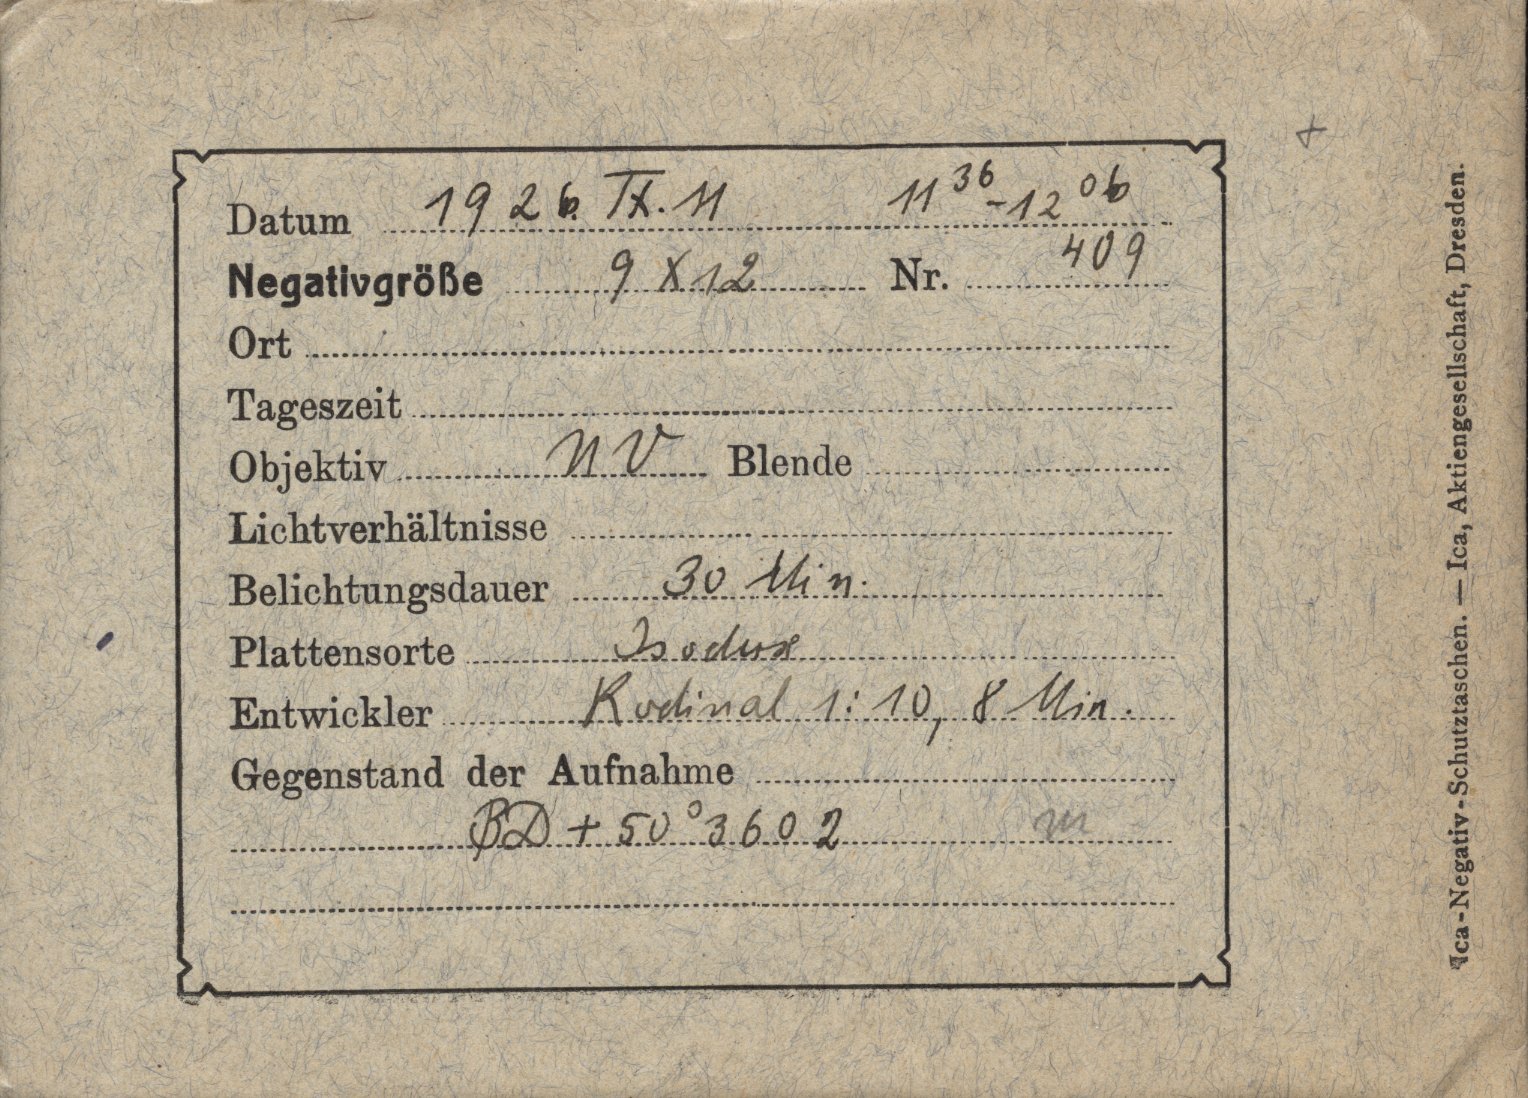 Datum 1926. IX. 11 11 36 - 12 06
Negativgröße 9 X 12 Nr. 409
Ort
Tageszeit
Objektiv NV Blende
Lichtverhältnisse
Belichtungsdauer 30 Min.
Plattensorte Isodux
Entwickler Rodinal 1:10, 8 Min.
Gegenstand der Aufnahme
BD + 50° 3602
Ica-Negativ-Schutztaschen. — Ica, Aktiengesellschaft, Dresden.